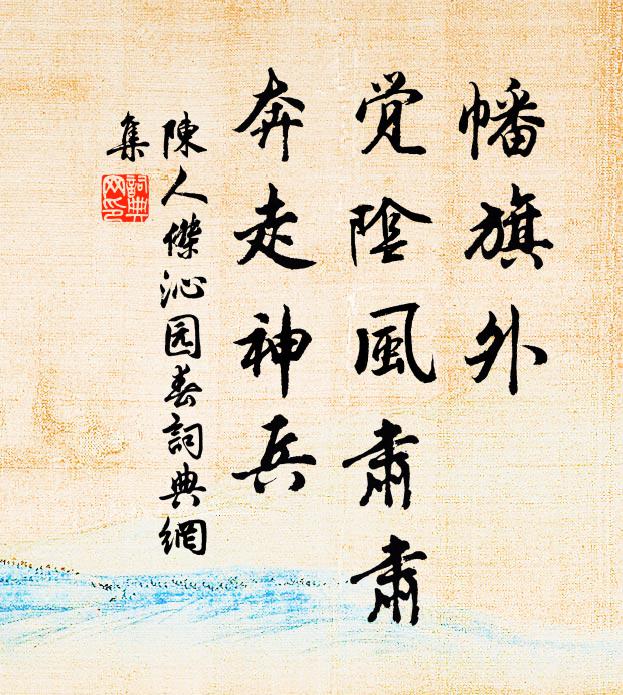 幡旗外
覚陰風肅肅
奔走神兵
陳人傑沁园春詞典網
集
詞典
网印